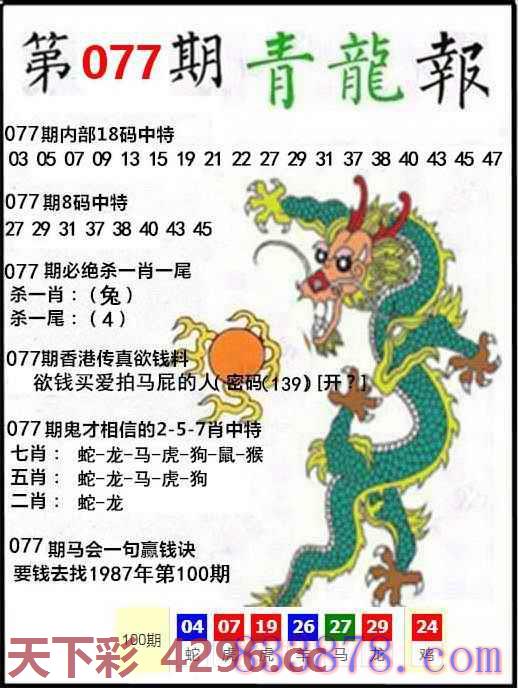 第077期青龍報
077期内部18码中特
03 05 07 09 13 15 19 21 22 27 29 31 37 38 40 43 45 47
077期8码中特
27 29 31 37 38 40 43 45
077期必绝杀一肖一尾
杀一肖:(兔)
杀一尾:(4)
077期香港传真欲钱料
欲钱买爱拍马屁的人(密码(139)[开?]
077期鬼才相信的2-5-7肖中特
七肖: 蛇-龙-马-虎-狗-鼠-猴
五肖: 蛇-龙-马-虎-狗
二肖: 蛇-龙
077期马会一句赢钱诀
要钱去找1987年第100期
100期 04 07 19 26 27 29 24
蛇 虎 虎 羊 马 龙 鸡
天下彩 4296.cc
878.com